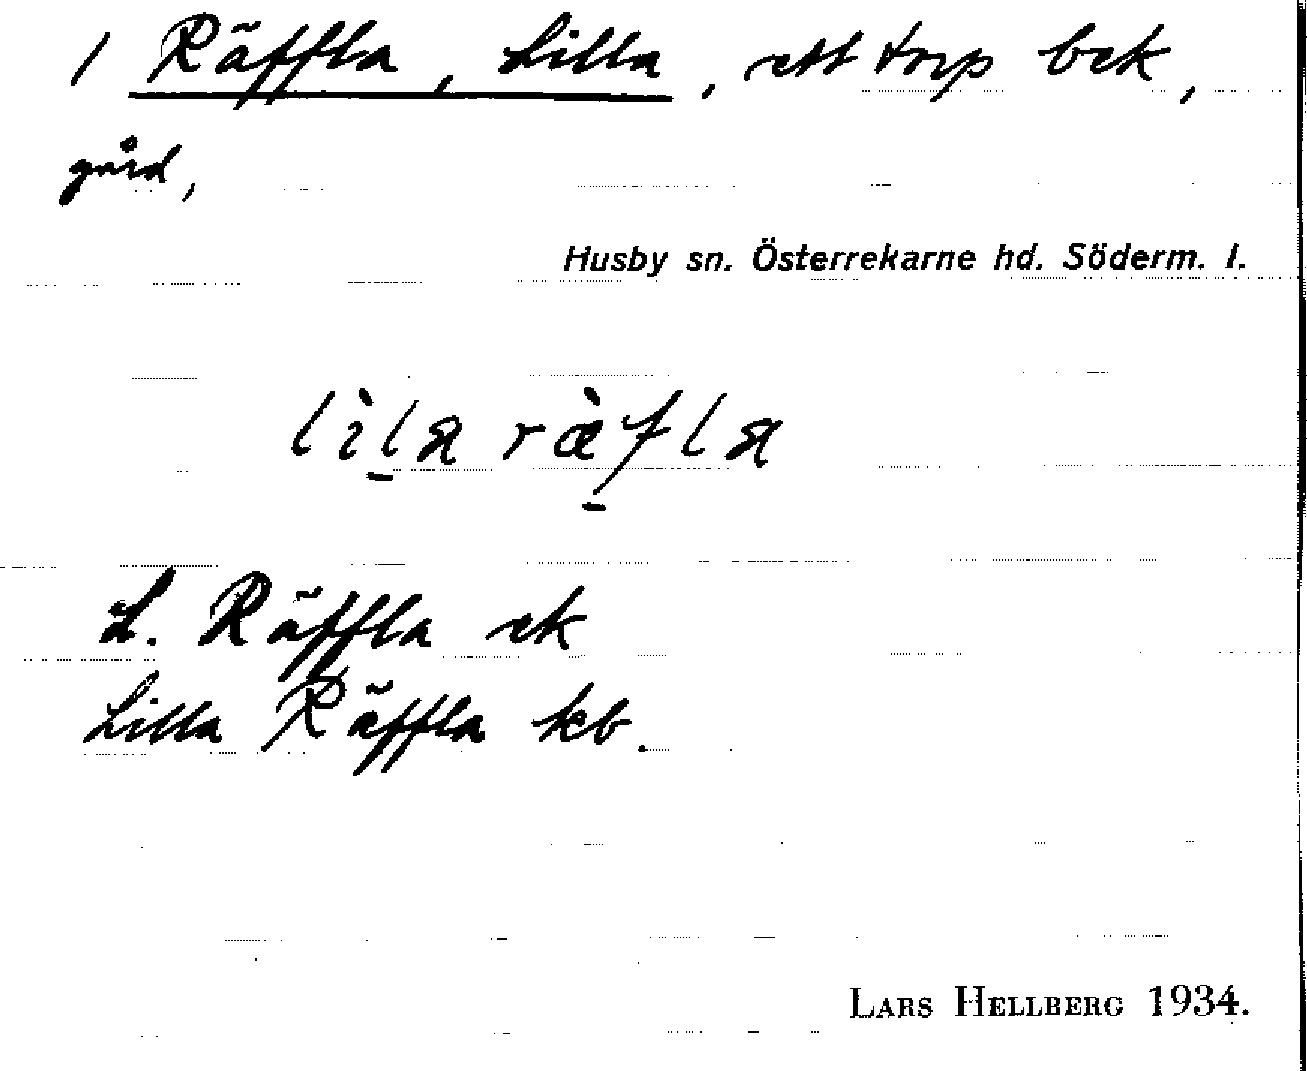 1 Räffla, Lilla, ett torp bek,
gård,
Husby sn. Österrekarne hd. Söderm. l.
lìla ræ̀fla
L. Räffla ek
Lilla Räffla kb.
LARS HELLBERG 1934.